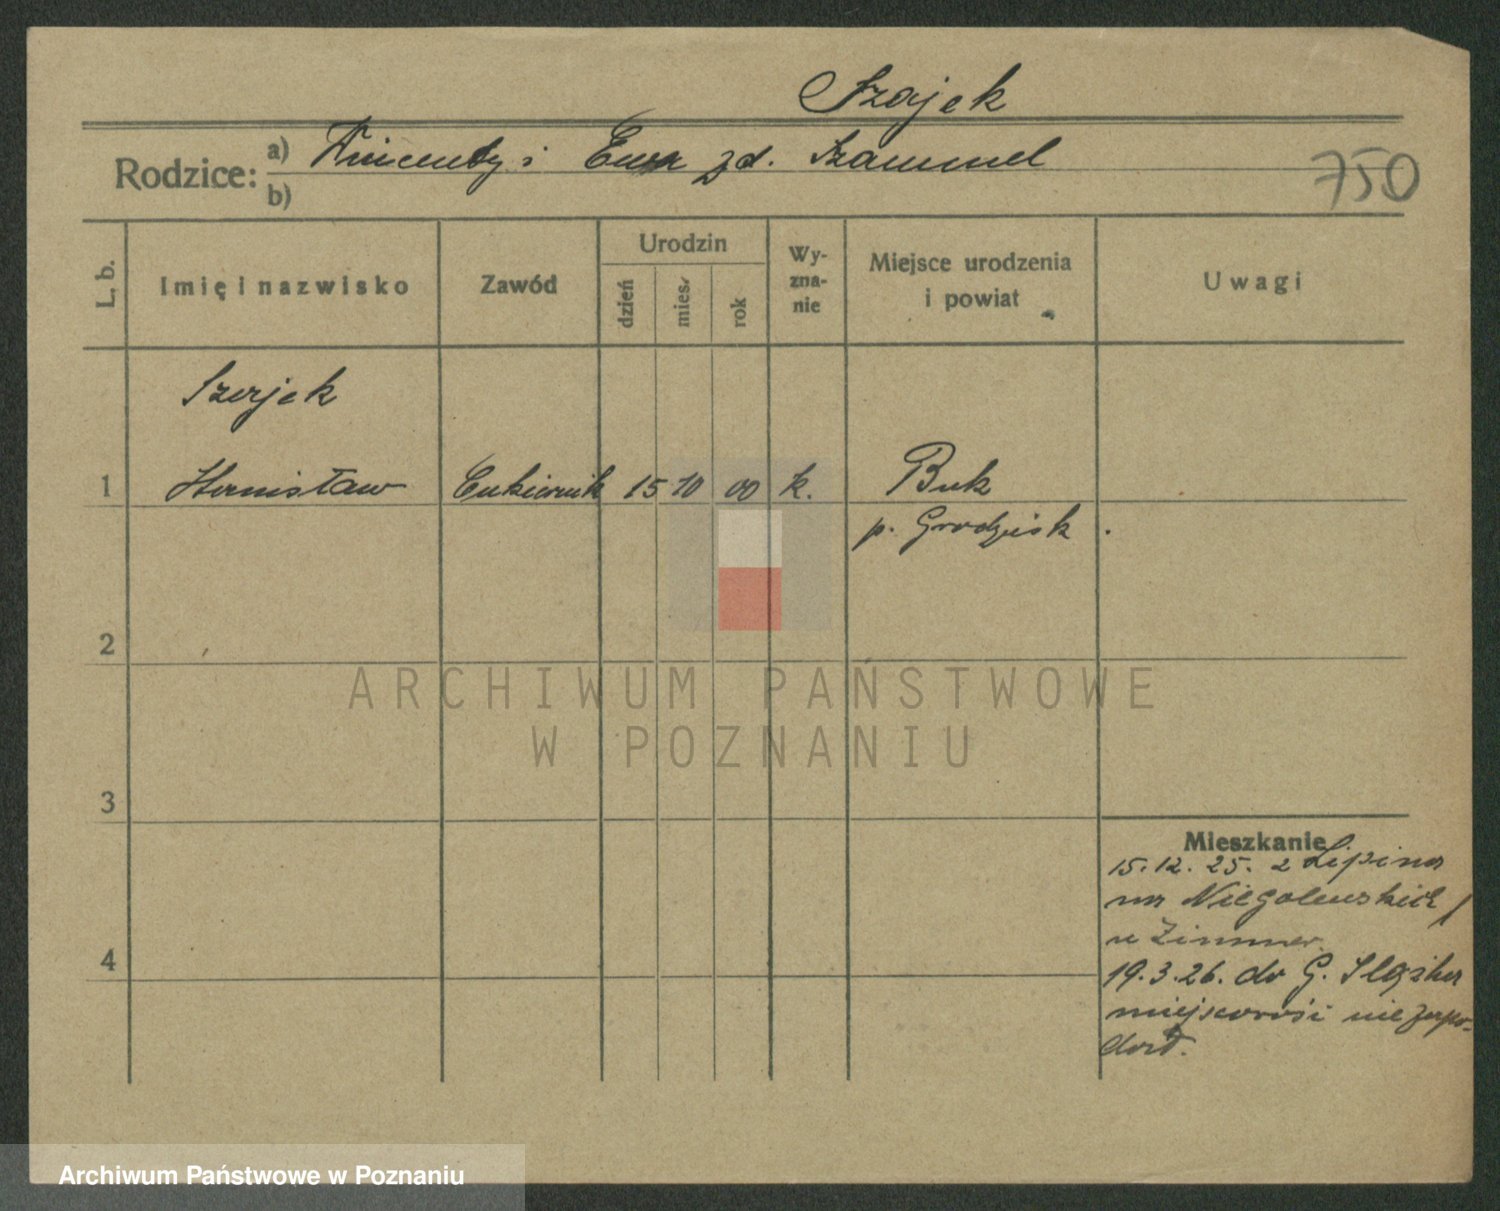 Szajek
Rodzice: a) Wincenty i Ewa zd. Szammel
b)
750
L. b.
Imię i nazwisko
Zawód
Urodzin
dzień
mies.
rok
Wy-
zna-
nie
Miejsce urodzenia
i powiat
Uwagi
Szajek
1 Stanisław Cukiernik 15 10 00 k. Buk
p. Grodzisk
2
3
4
Mieszkanie
15.12.25. z Lipina
na Niegolewskich
u Zimmer
19.3.26. do G. Śląska
miejscowości nie zapo-
dał.
ARCHIWUM PAŃSTWOWE
W POZNANIU
Archiwum Państwowe w Poznaniu